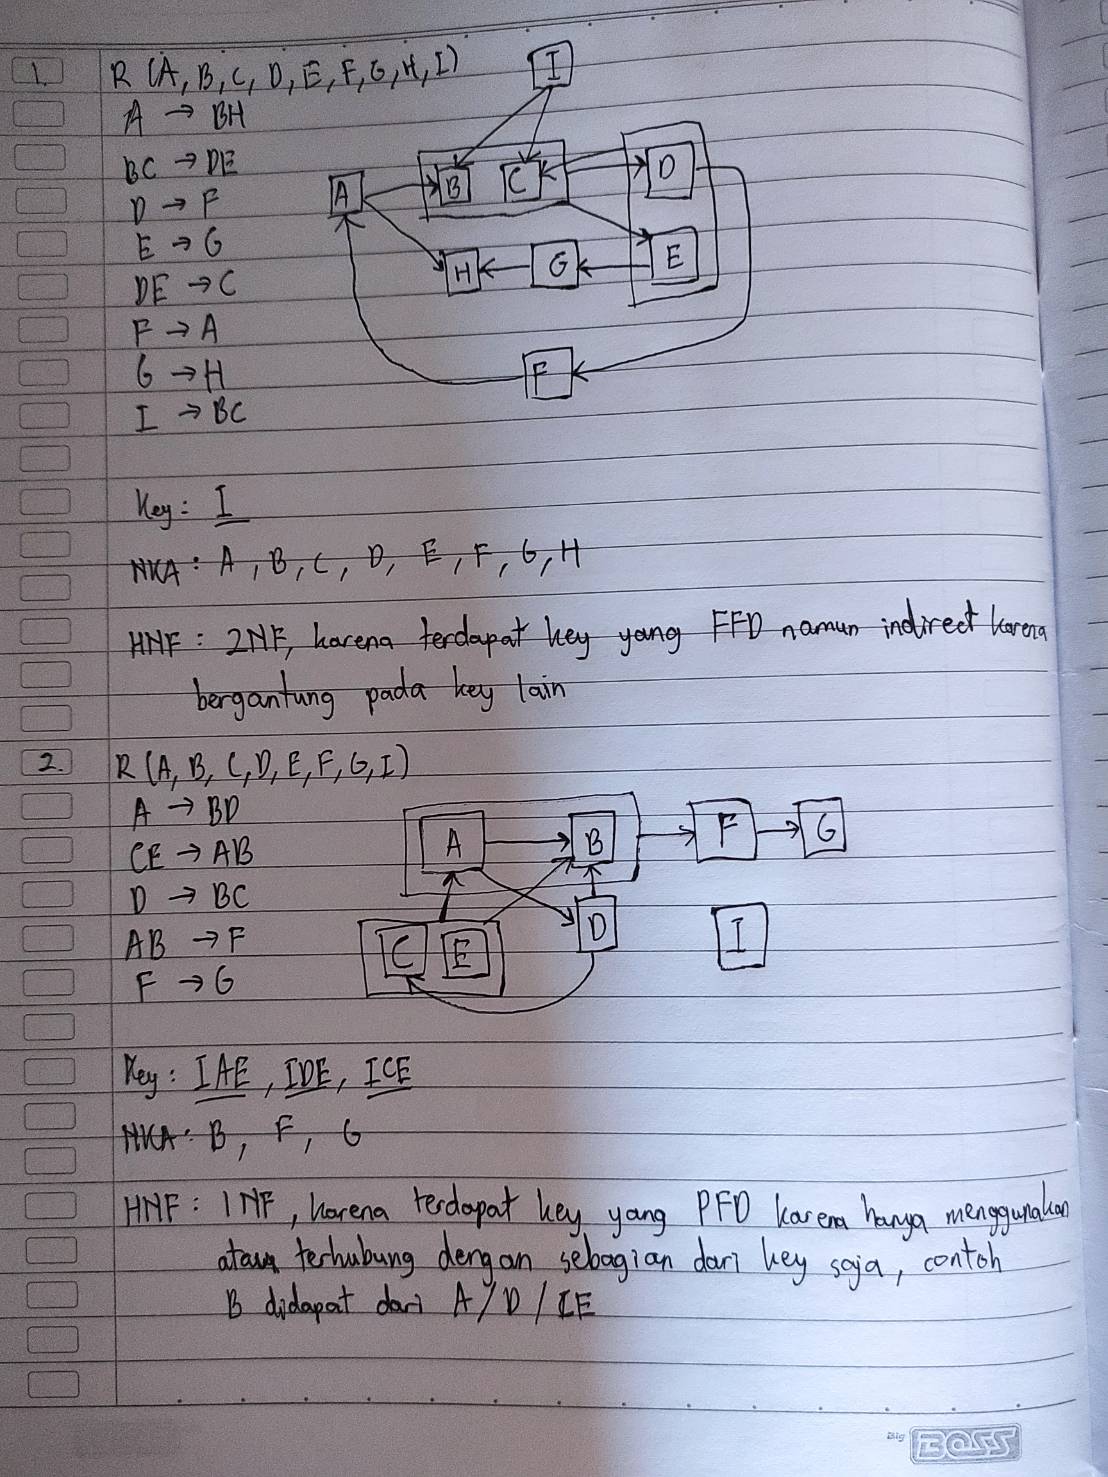 1. R (A, B, C, D, E, F, G, H, I)
A → BH
BC → DE
D → F
E → G
DE → C
F → A
G → H
I → BC
I
A B C D
H G E
F
Key : I
NKA : A, B, C, D, E, F, G, H
HNF : 2NF, karena terdapat key yang FFD namun indirect karena
bergantung pada key lain
2. R (A, B, C, D, E, F, G, I)
A → BD
CE → AB
D → BC
AB → F
F → G
A B F G
C E D I
Key : IAE, IDE, ICE
NKA : B, F, G
HNF : 1NF, karena terdapat key yang PFD karena hanya menggunakan
atau terhubung dengan sebagian dari key saja, contoh
B didapat dari A/D/CE
Big BOSS